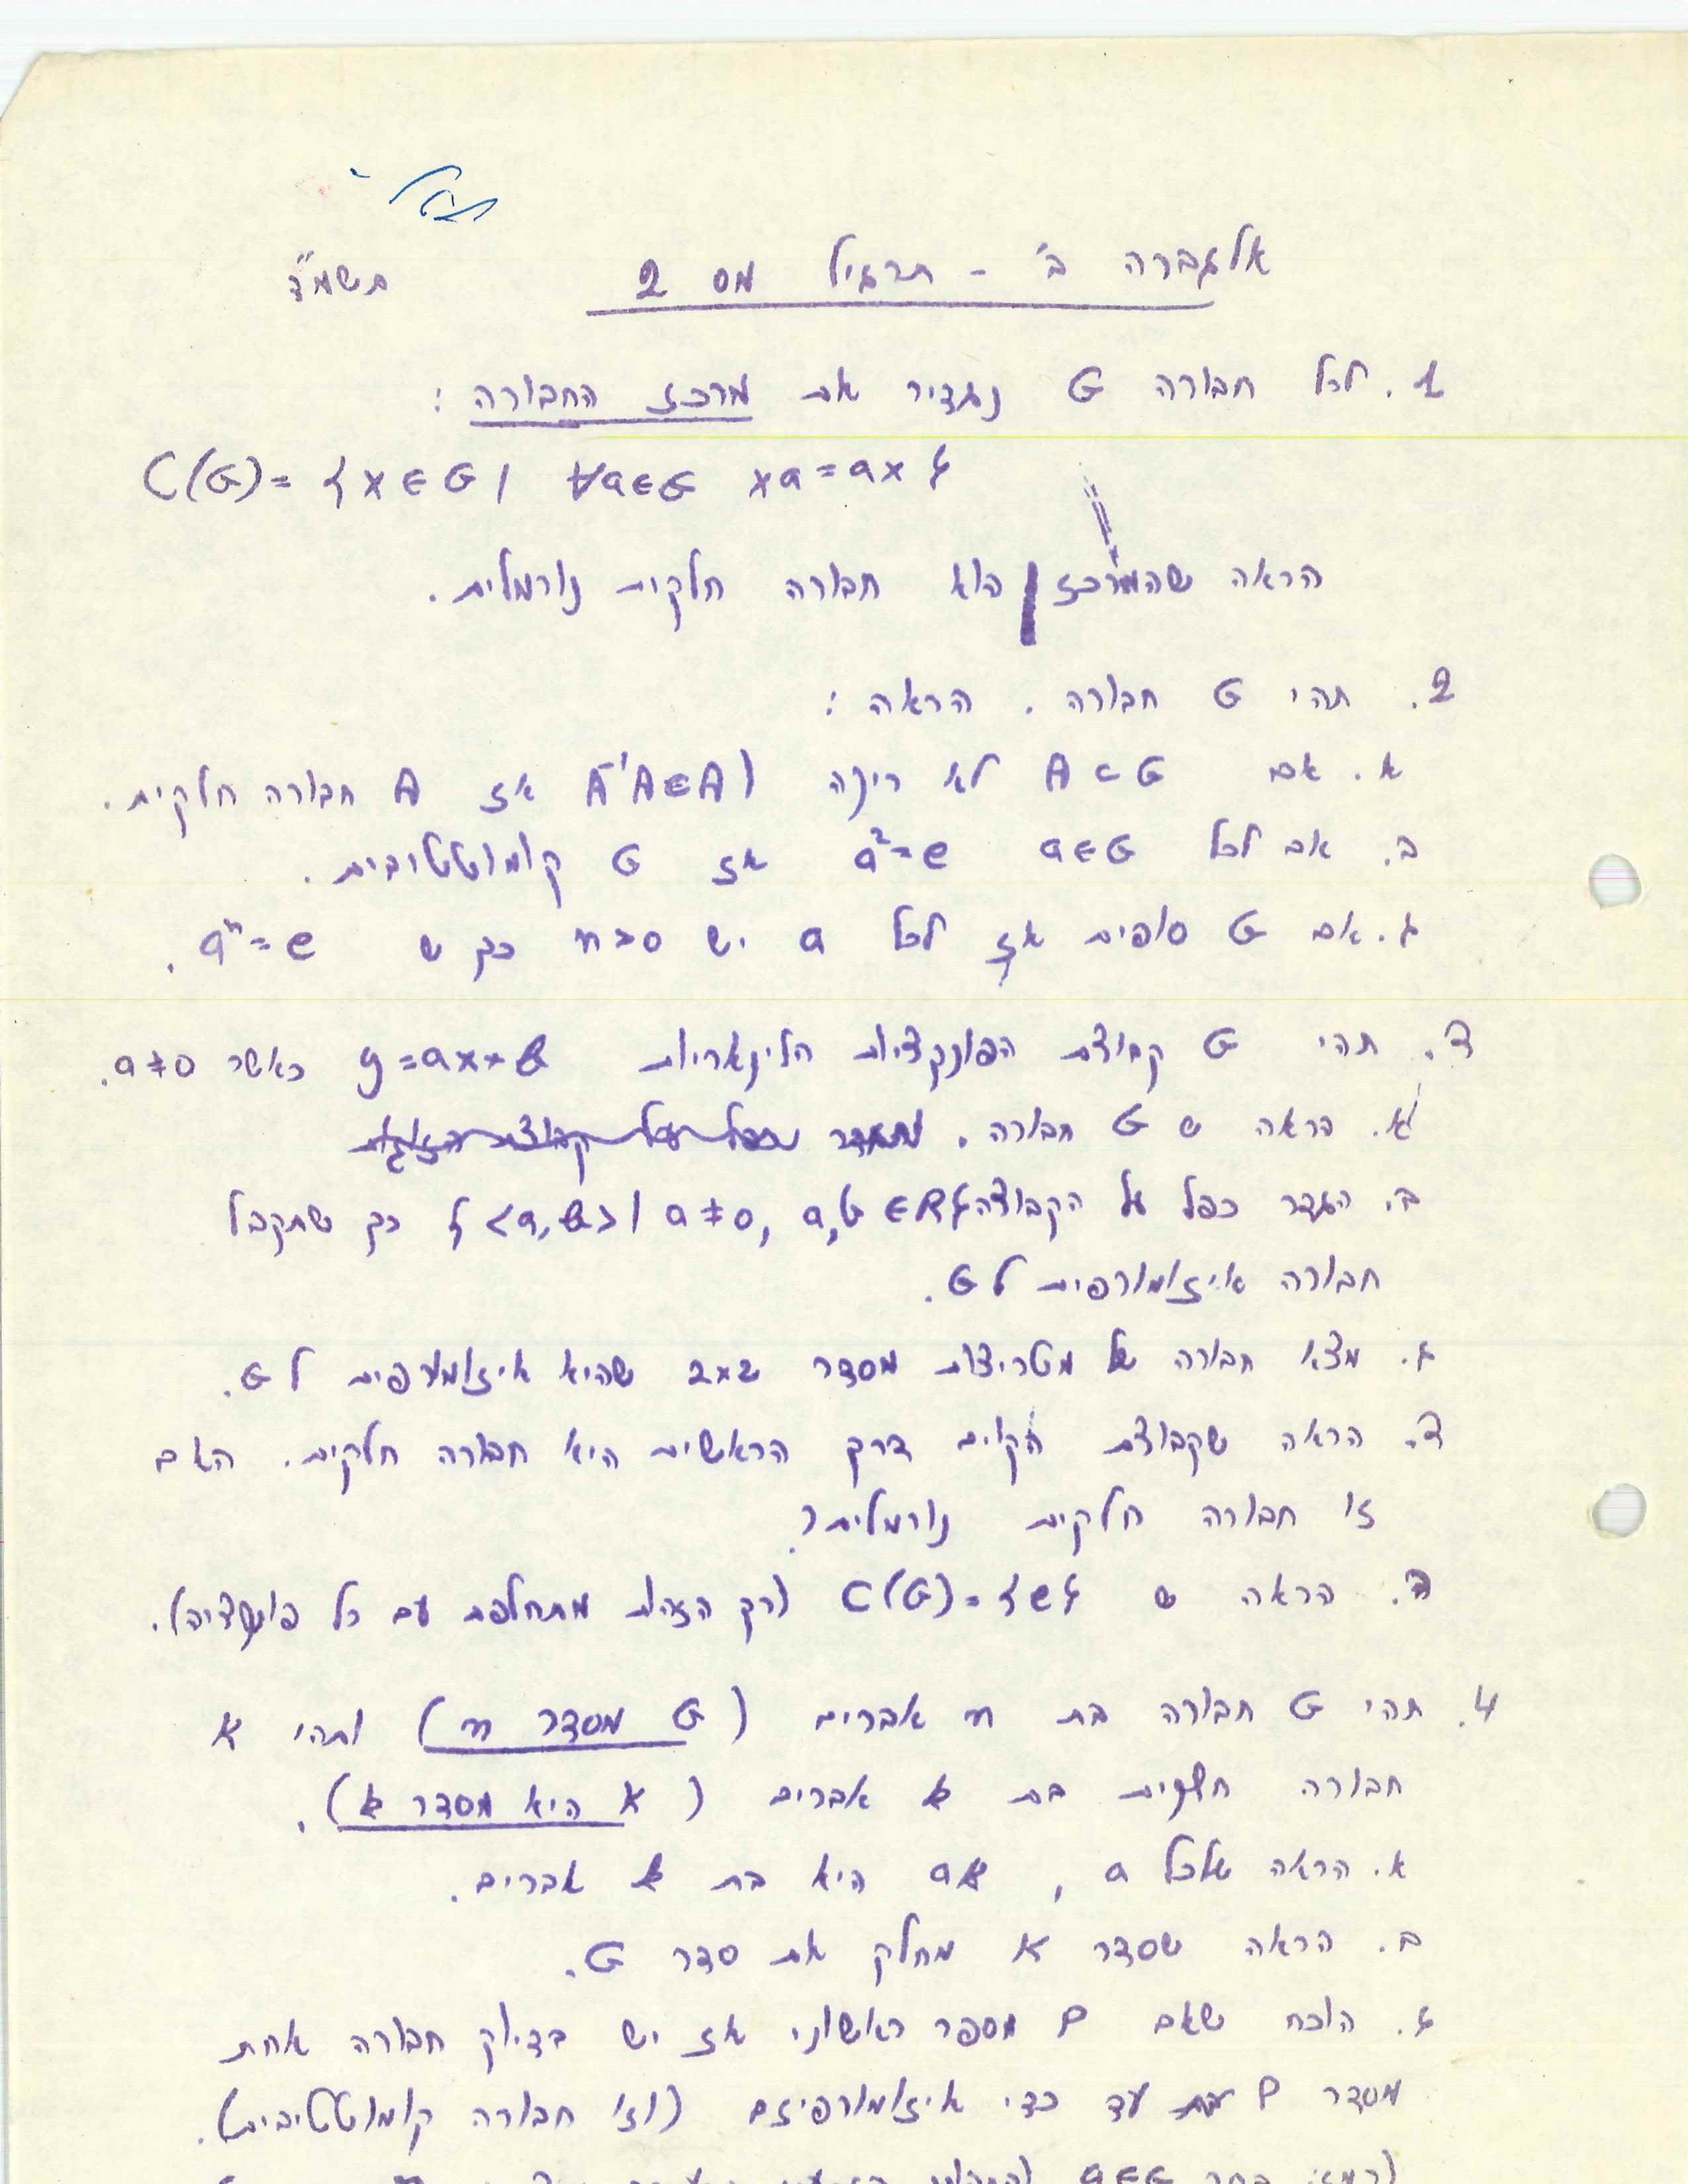 אלגברה ב' - תרגיל מס 2 תשמ"ד
1. לכל חבורה G נגדיר את מרכז החבורה :
C(G)= {x∈G| ∀a∈G xa=ax}
הראה שהמרכז הוא חבורה חלקית נורמלית.
2. תהי G חבורה . הראה :
א. אם A⊂G לא ריקה ו A⁻¹A∈A אז A חבורה חלקית.
ב. אם לכל a∈G a²=e אז G קומוטטיבית.
ג. אם G סופית אז לכל a יש n>0 כך ש aⁿ=e.
ד. תהי G קבוצת הפונקציות הלינאריות y=ax+b כאשר a≠0.
א. הראה ש G חבורה.
ב. הגדר כפל על הקבוצה {<a,b>| a≠0, a,b∈R} כך שתקבל
חבורה איזומורפית ל G.
ג. מצא חבורה של מטריצות מסדר 2x2 שהיא איזומורפית ל G.
ד. הראה שקבוצת הקוים דרך הראשית היא חבורה חלקית. האם
זו חבורה חלקית נורמלית?
ה. הראה ש C(G)={e} (רק הזהות מתחלפת עם כל פונקציה).
4. תהי G חבורה בת n אברים (G מסדר n) ותהי K
חבורה חלקית בת k אברים (K היא מסדר k).
א. הראה שלכל a, aK היא בת k אברים.
ב. הראה שסדר K מחלק את סדר G.
ג. הוכח שאם P מספר ראשוני אז יש בדיוק חבורה אחת
מסדר P עד כדי איזומורפיזם (וזו חבורה קומוטטיבית).